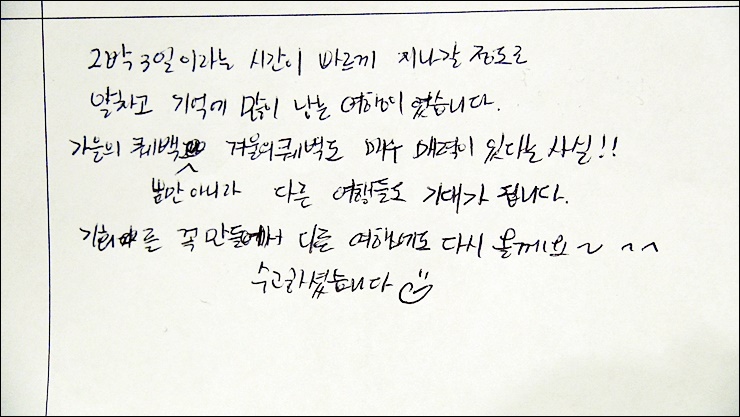 2박3일이라는 시간이 빠르게 지나갈 정도로
알차고 기억에 많이 남는 여행이었습니다.
가을의 퀘백 겨울의퀘벡도 매우 매력이 있다는 사실!!
뿐만 아니라 다른 여행들도 기대가 됩니다.
기회를 꼭 만들어서 다른 여행에도 다시 올께요~ ^^
수고하셨습니다